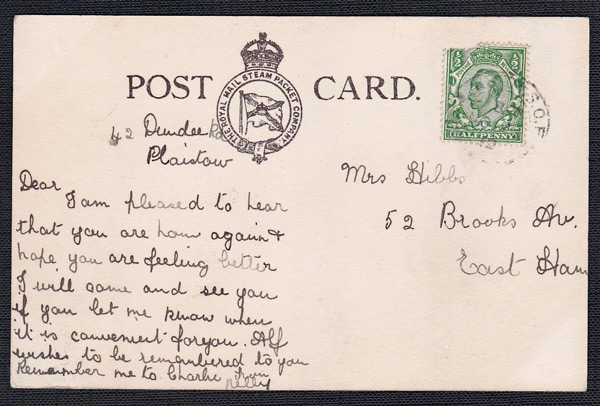 POST CARD.
THE ROYAL MAIL STEAM PACKET COMPANY
½ ½
HALFPENNY
S.O.F
42 Dundee Rd
Plaistow
Dear
I am pleased to hear
that you are home again &
hope you are feeling better
I will come and see you
if you let me know when
it is convenient for you. Alf
wishes to be remembered to you
Remember me to Charlie from
Nelly
Mrs Hibbs
52 Brooks Av.
East Ham